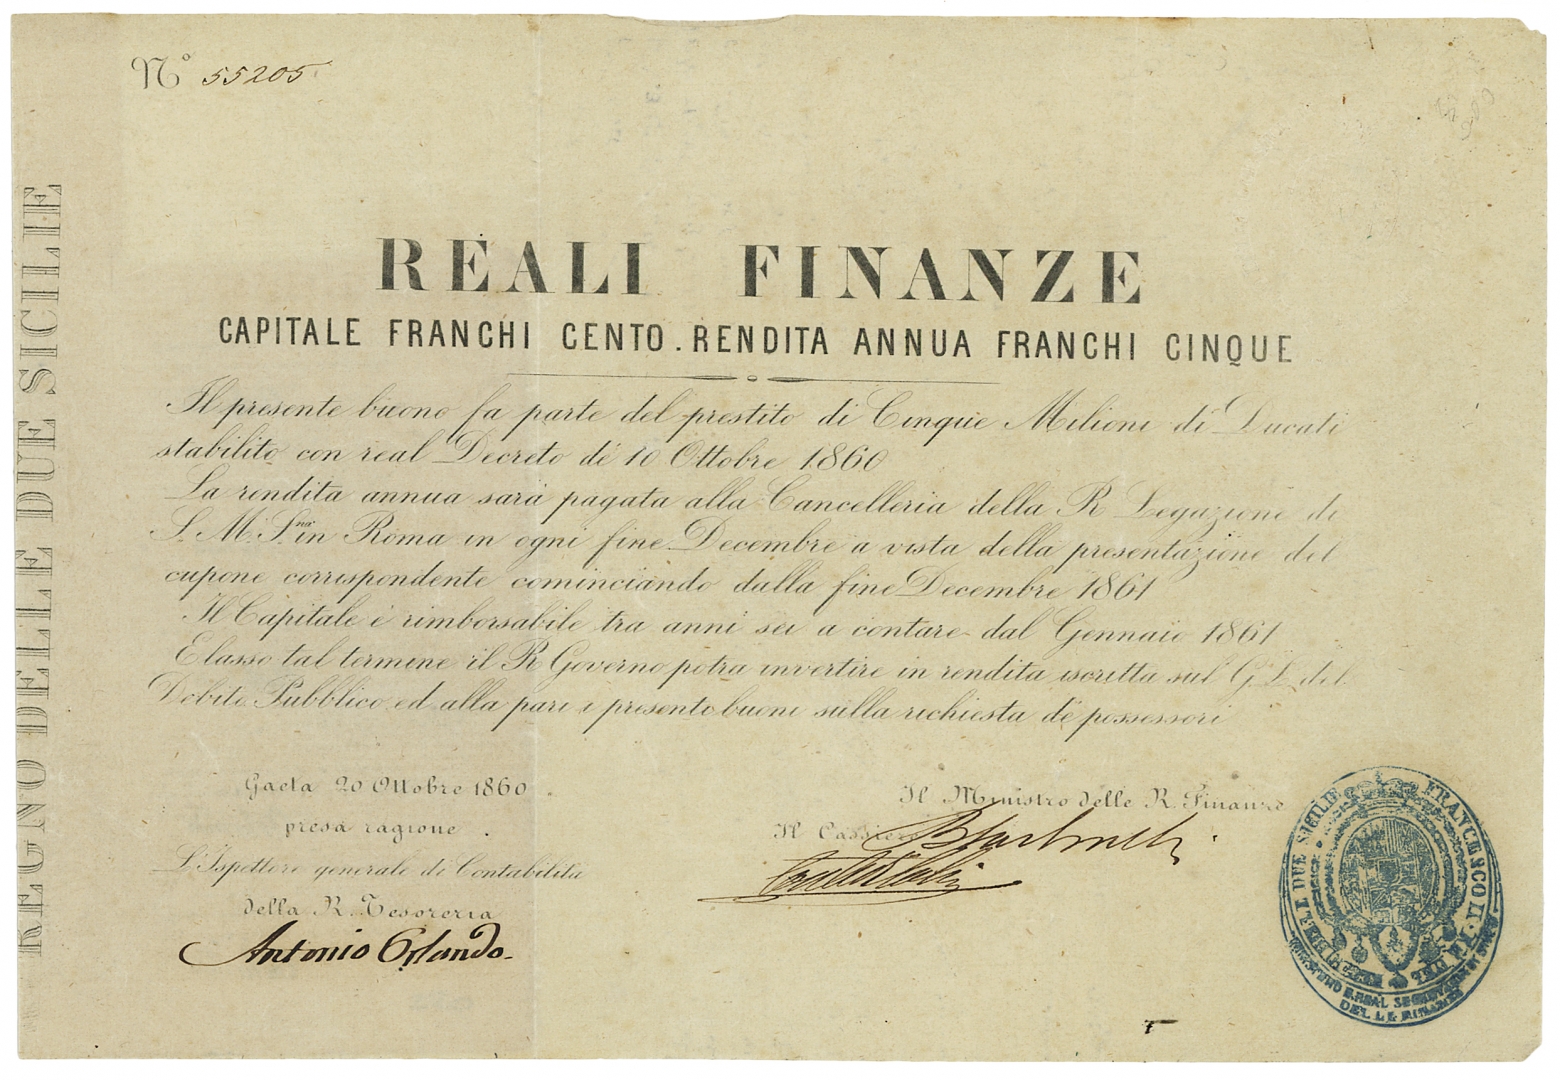 Nº 55205
REGNO DELLE DUE SICILIE
REALI FINANZE
CAPITALE FRANCHI CENTO. RENDITA ANNUA FRANCHI CINQUE
Il presente buono fa parte del prestito di Cinque Milioni di Ducati
stabilito con real Decreto de' 10 Ottobre 1860
La rendita annua sarà pagata alla Cancelleria della R Legazione di
S. M. S.na in Roma in ogni fine Decembre a vista della presentazione del
cupone corrispondente cominciando dalla fine Decembre 1861
Il Capitale è rimborsabile tra anni sei a contare dal Gennaio 1861
Elasso tal termine il R Governo potrà invertire in rendita iscritta sul G. L. del
Debito Pubblico, ed alla pari i presenti buoni sulla richiesta de' possessori
Gaeta 20 Ottobre 1860.
presa ragione.
L'Ispettore generale di Contabilità
della R. Tesoreria
Antonio Orlando.
Il Ministro delle R. Finanze
Il Cassiere
FRANCESCO II. RE DEL REGNO DELLE DUE SICILIE
MINISTERO E REAL SEGRETERIA DI STATO
DELLE FINANZE